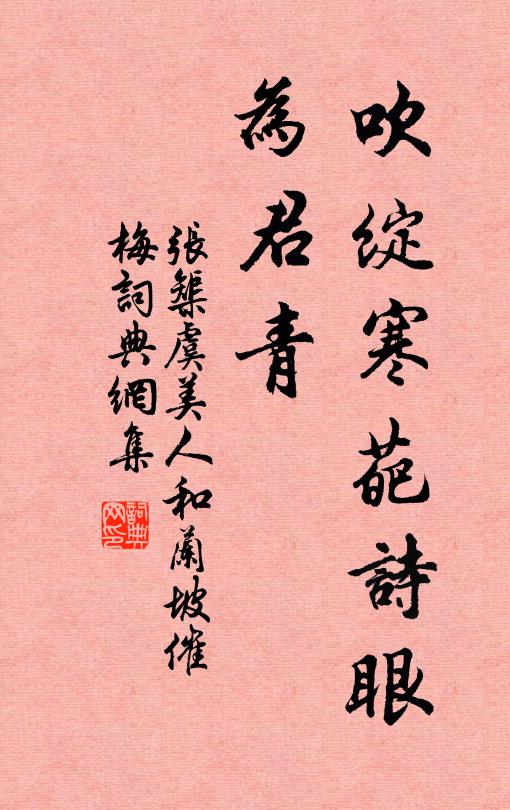 吹綻寒葩詩眼
為君青
張榘虞美人和蘭坡催
梅詞典網集
詞典
网印